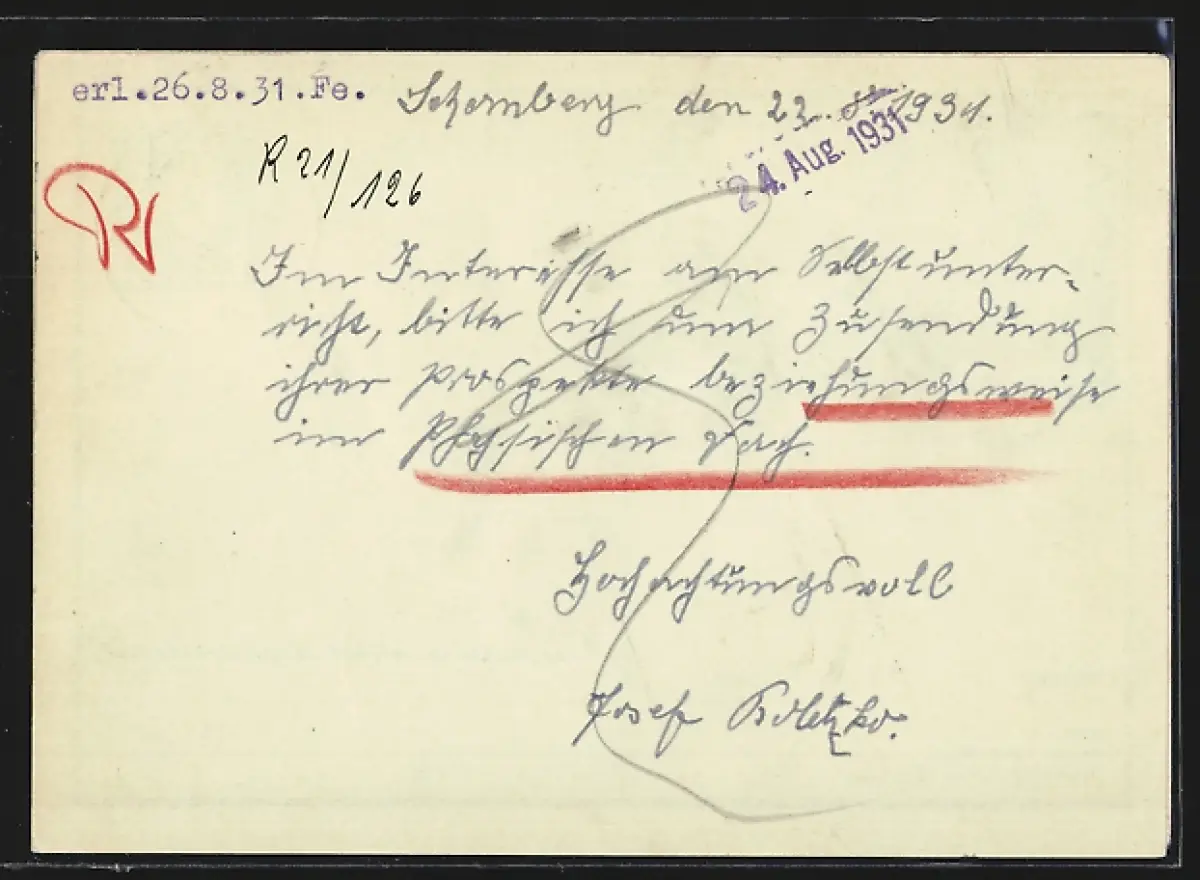 erl.26.8.31.Fe.
Schomberg den 23. 8. 1931.
24. Aug. 1931
R 21/126
Im Interesse am Selbstunter-
richt, bitte ich um Zusendung
ihrer Prospekte beziehungsweise
im Physischen Fach.
Hochachtungsvoll
Josef Koletzko.